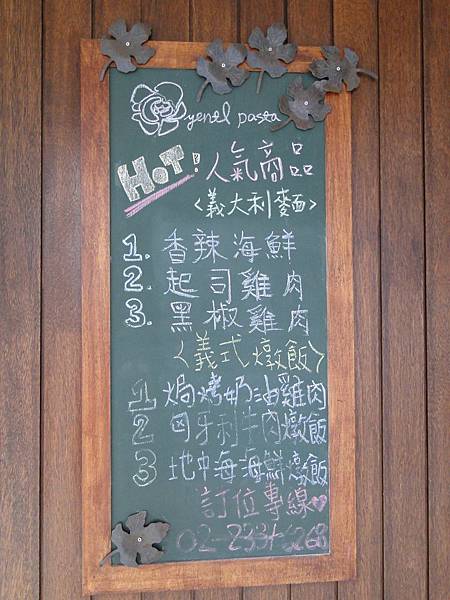 yenel pasta
HOT! 人氣商品
<義大利麵>
1. 香辣海鮮
2. 起司雞肉
3. 黑椒雞肉
<義式燉飯>
1 焗烤奶油雞肉
2 匈牙利牛肉燉飯
3 地中海海鮮燉飯
訂位專線♥